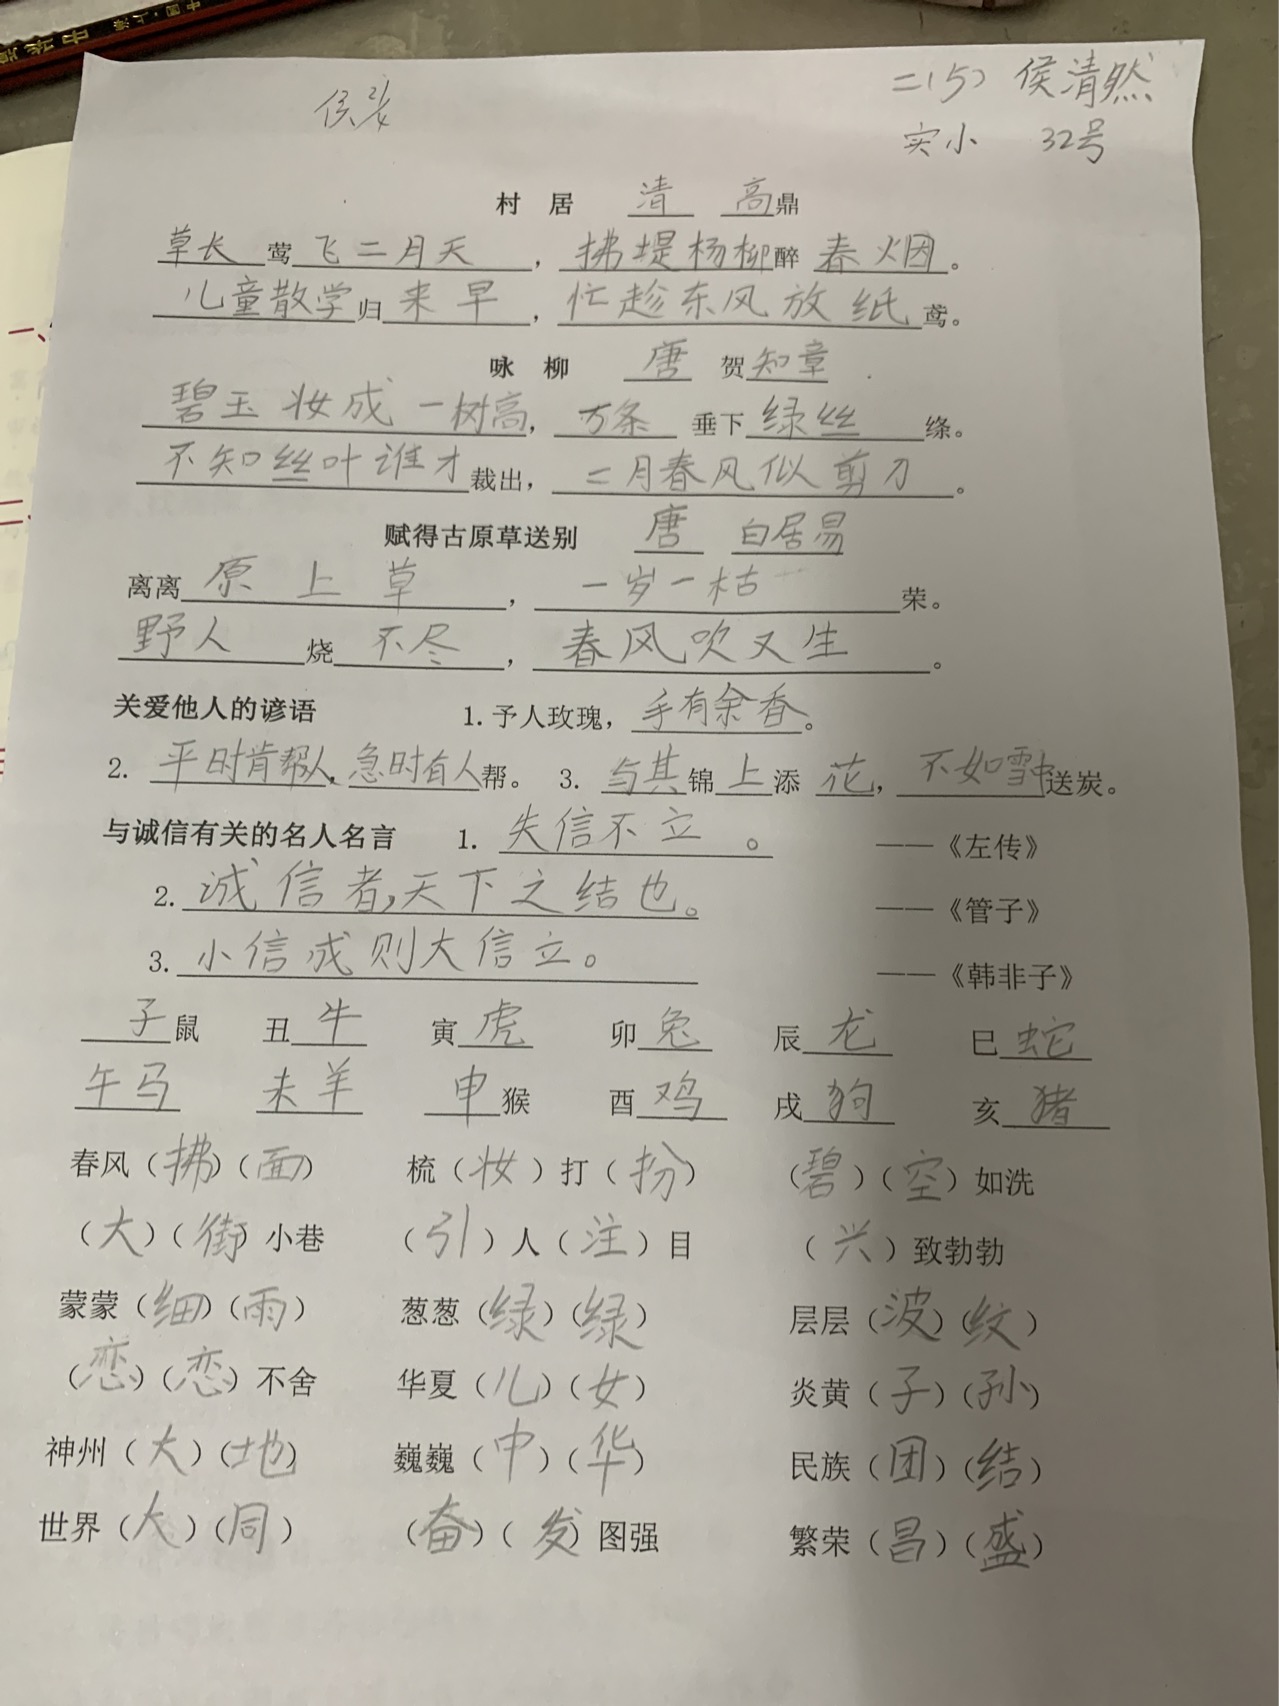 二(5) 侯清然
侯
实小 32号
村 居 清 高鼎
草长莺飞二月天，拂堤杨柳醉春烟。
儿童散学归来早，忙趁东风放纸鸢。
咏 柳 唐 贺知章
碧玉妆成一树高，万条垂下绿丝绦。
不知丝叶谁才裁出，二月春风似剪刀。
赋得古原草送别 唐 白居易
离离原上草，一岁一枯荣。
野人烧不尽，春风吹又生。
关爱他人的谚语 1.予人玫瑰，手有余香。
2. 平时肯帮人，急时有人帮。 3. 与其锦上添花，不如雪中送炭。
与诚信有关的名人名言 1. 失信不立。 ——《左传》
2. 诚信者，天下之结也。 ——《管子》
3. 小信成则大信立。 ——《韩非子》
子鼠 丑牛 寅虎 卯兔 辰龙 巳蛇
午马 未羊 申猴 酉鸡 戌狗 亥猪
春风（拂）（面） 梳（妆）打（扮） （碧）（空）如洗
（大）（街）小巷 （引）人（注）目 （兴）致勃勃
蒙蒙（细）（雨） 葱葱（绿）（绿） 层层（波）（纹）
（恋）（恋）不舍 华夏（儿）（女） 炎黄（子）（孙）
神州（大）（地） 巍巍（中）（华） 民族（团）（结）
世界（大）（同） （奋）（发）图强 繁荣（昌）（盛）